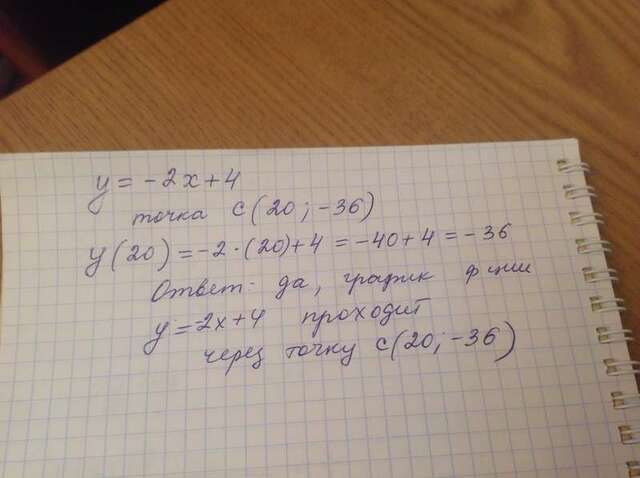 y = -2x+4
точка C(20; -36)
y(20) = -2·(20)+4 = -40+4 = -36
Ответ: да, график ф-ции
y = -2x+4 проходит
через точку C(20; -36)